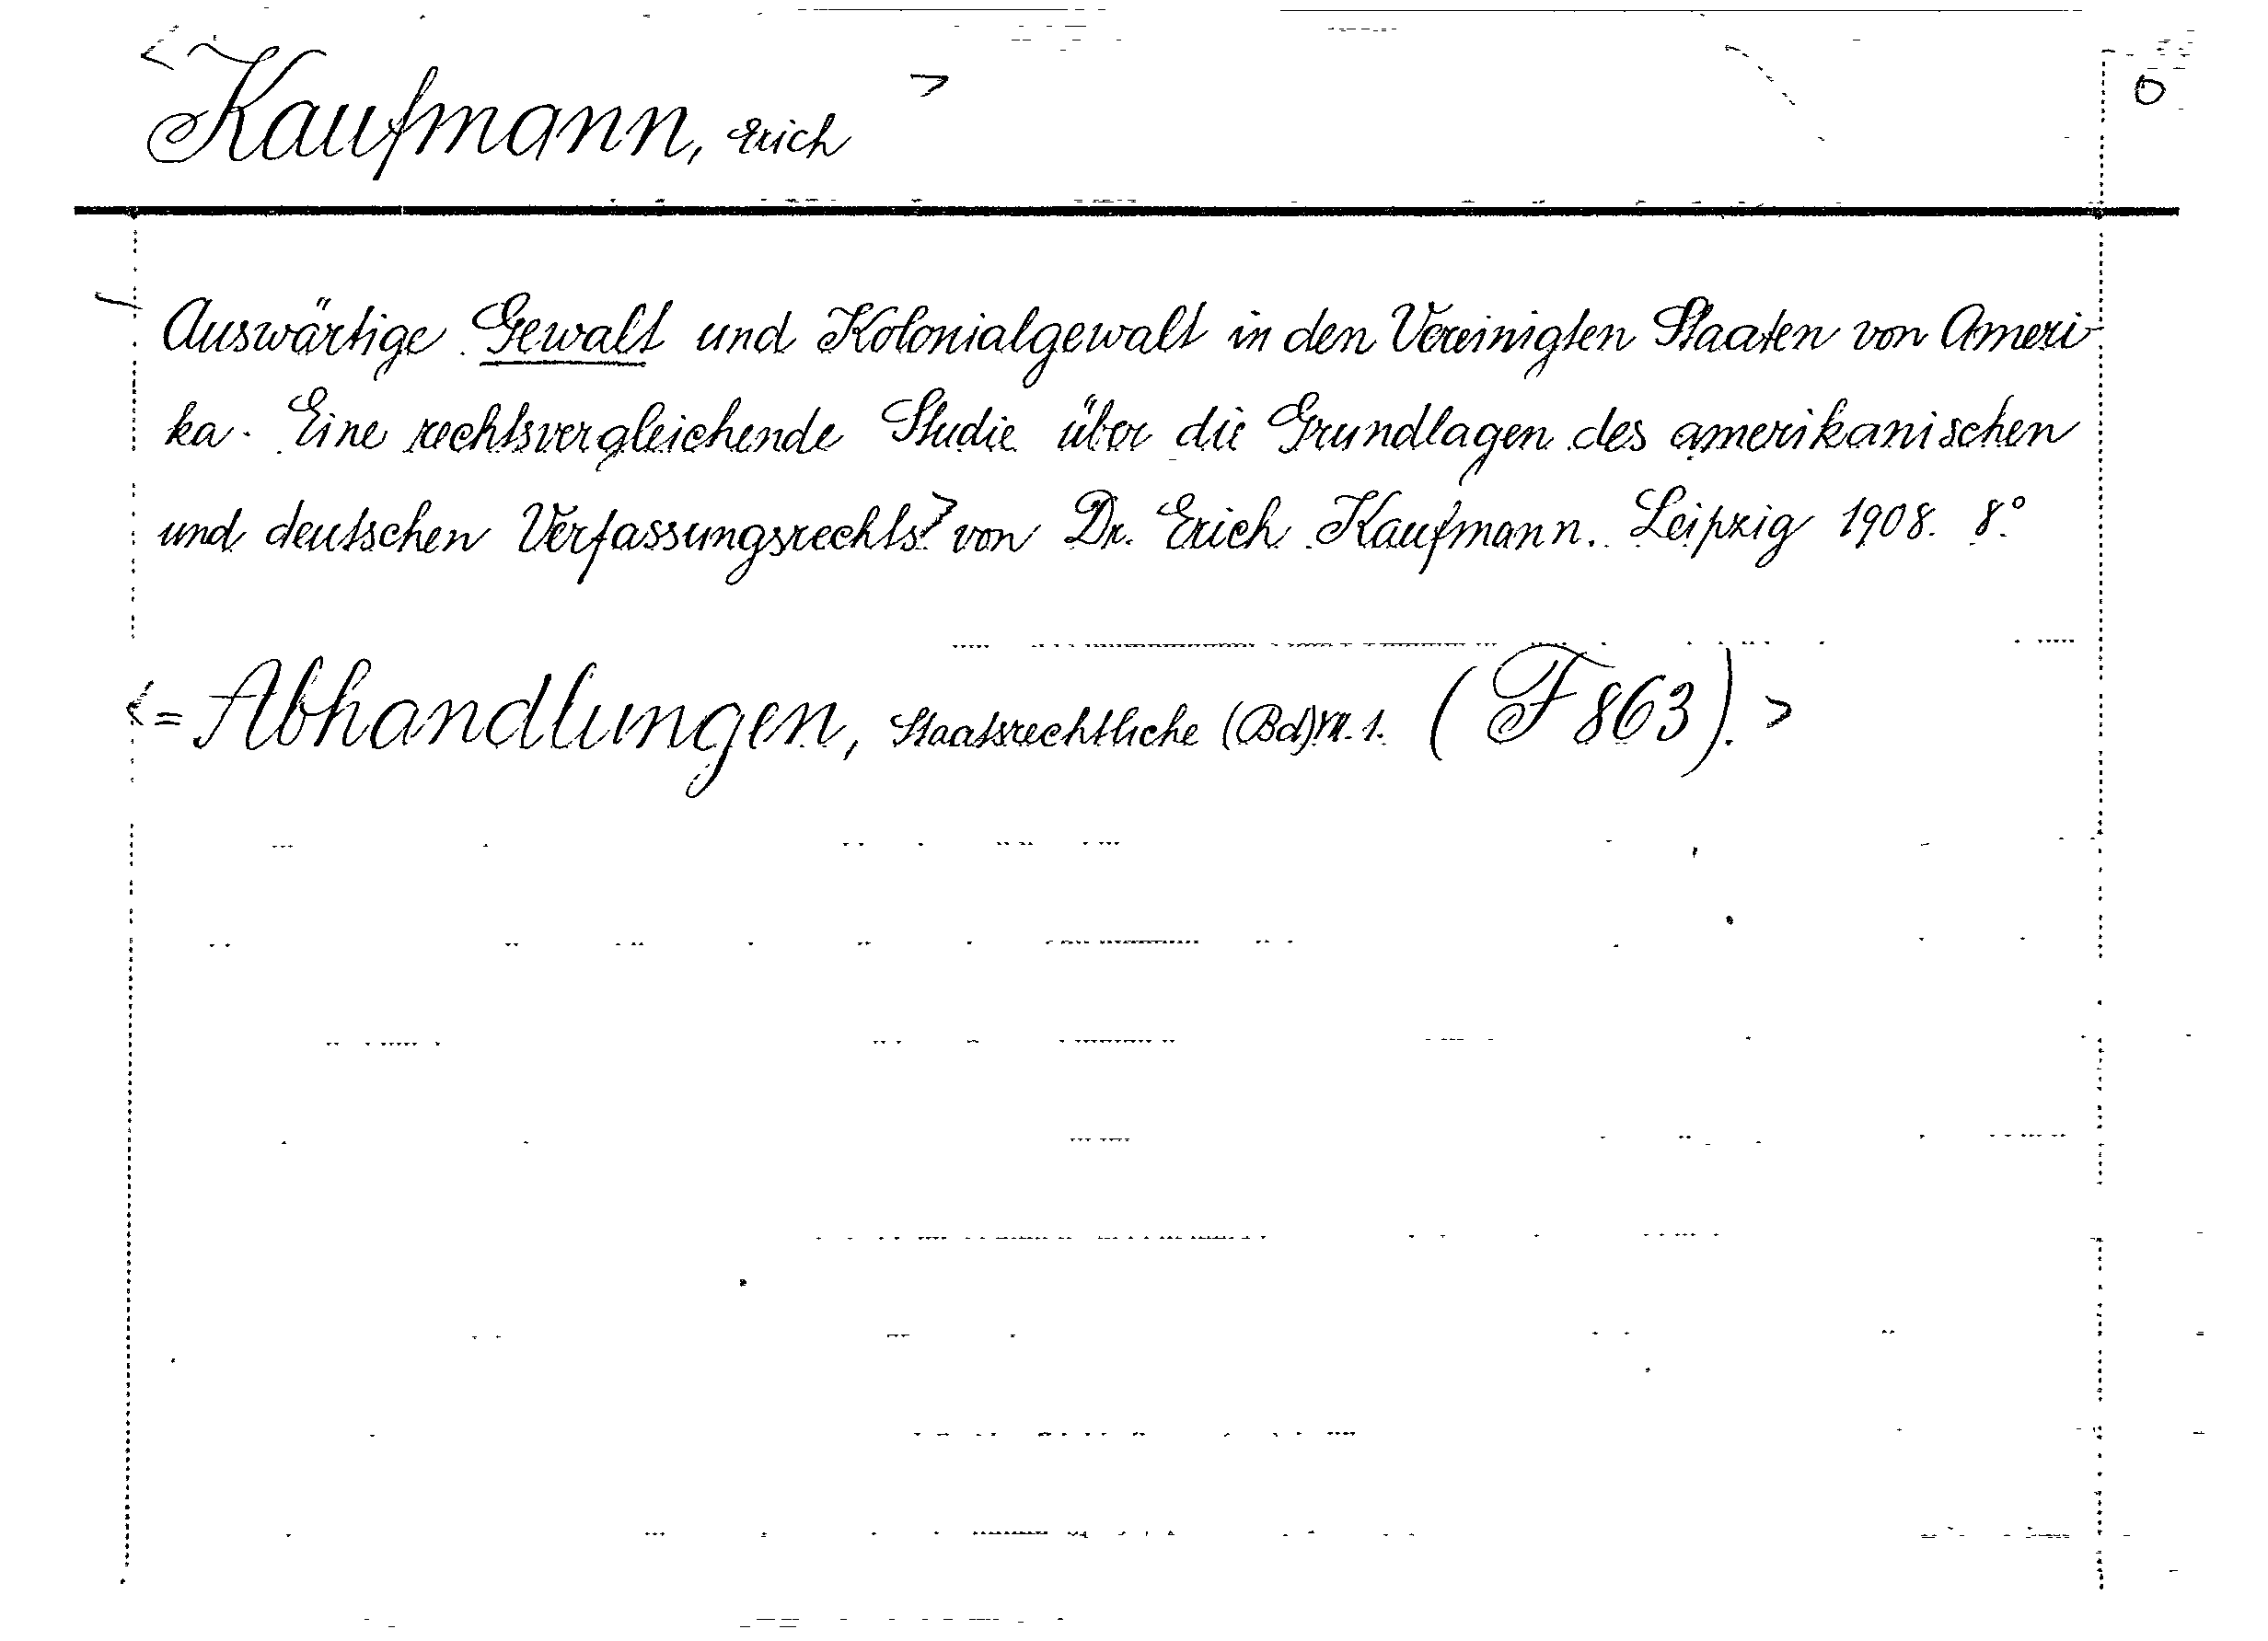 <Kaufmann, Erich> 0
Auswärtige Gewalt und Kolonialgewalt in den Vereinigten Staaten von Ameri-
ka. Eine rechtsvergleichende Studie über die Grundlagen des amerikanischen
und deutschen Verfassungsrechts> von Dr. Erich Kaufmann. Leipzig 1908. 8°.
<= Abhandlungen, Staatsrechtliche (Bd) VII. 1. (F 863).>